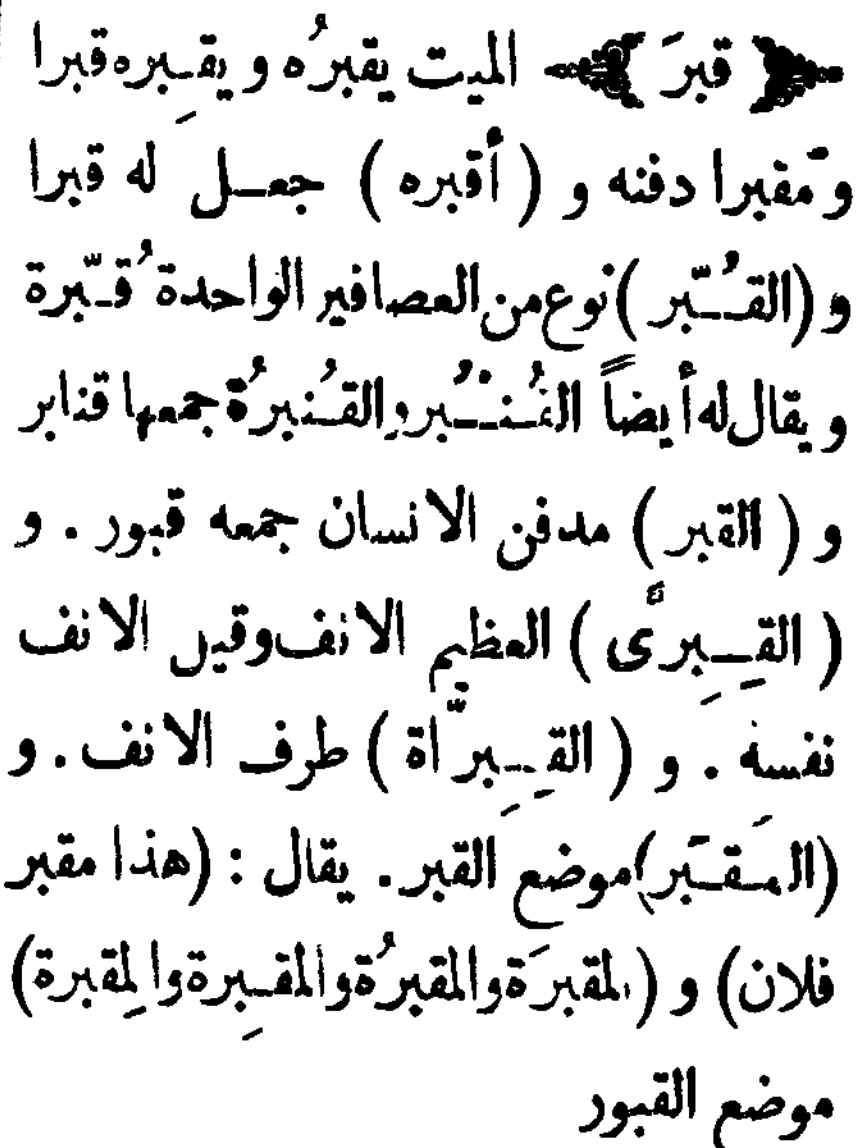 ﴿ قبرَ ﴾ الميت يقبرُه و يقبِره قبرا
و مَقبرا دفنه و ( أقبره ) جعل له قبرا
و (القُبّر) نوع من العصافير الواحدة قُبّرة
و يقال له أيضاً القُنْبُر والقُنبرُة جمعها قنابر
و ( القبر ) مدفن الانسان جمعه قبور . و
( القِبِرَّى ) العظيم الانف وقيل الانف
نفسه . و ( القِبِرّاة ) طرف الانف . و
(المَقبَر) موضع القبر . يقال : (هذا مقبر
فلان) و (المقبرَة والمقبرُة والمقبِرة والمِقبرة)
موضع القبور